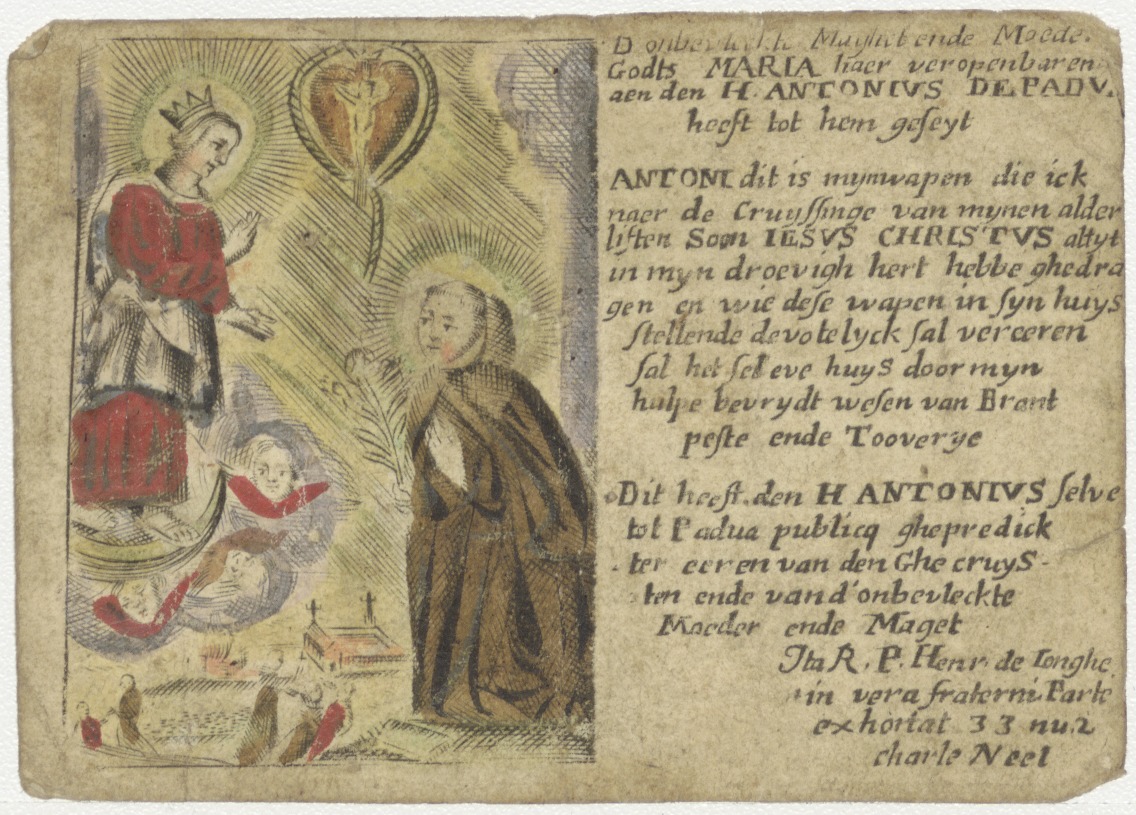 D onbevleckte Maghet ende Moeder
Godts MARIA haer veropenbaren
aen den H. ANTONIVS DE PADV.
heeft tot hem geseyt
ANTONI dit is mijnwapen die ick
naer de Cruyssinge van mynen alder
liefsten Soon IESVS CHRISTVS altyt
in myn droevigh hert hebbe ghedra
gen en wie dese wapen in syn huys
stellende devotelyck sal verceren
sal het seleve huys door myn
hulpe bevrydt wesen van Brant
peste ende Tooverye
Dit heeft den H ANTONIVS selve
tot Padua publicq ghepredickt
ter eeren van den Ghecruys-
ten ende vand'onbevleckte
Moeder ende Maget
Ita R. P. Henr. de Ionghe
in vera fraterni Parte
exhortat 33 nu.2
charle Neel